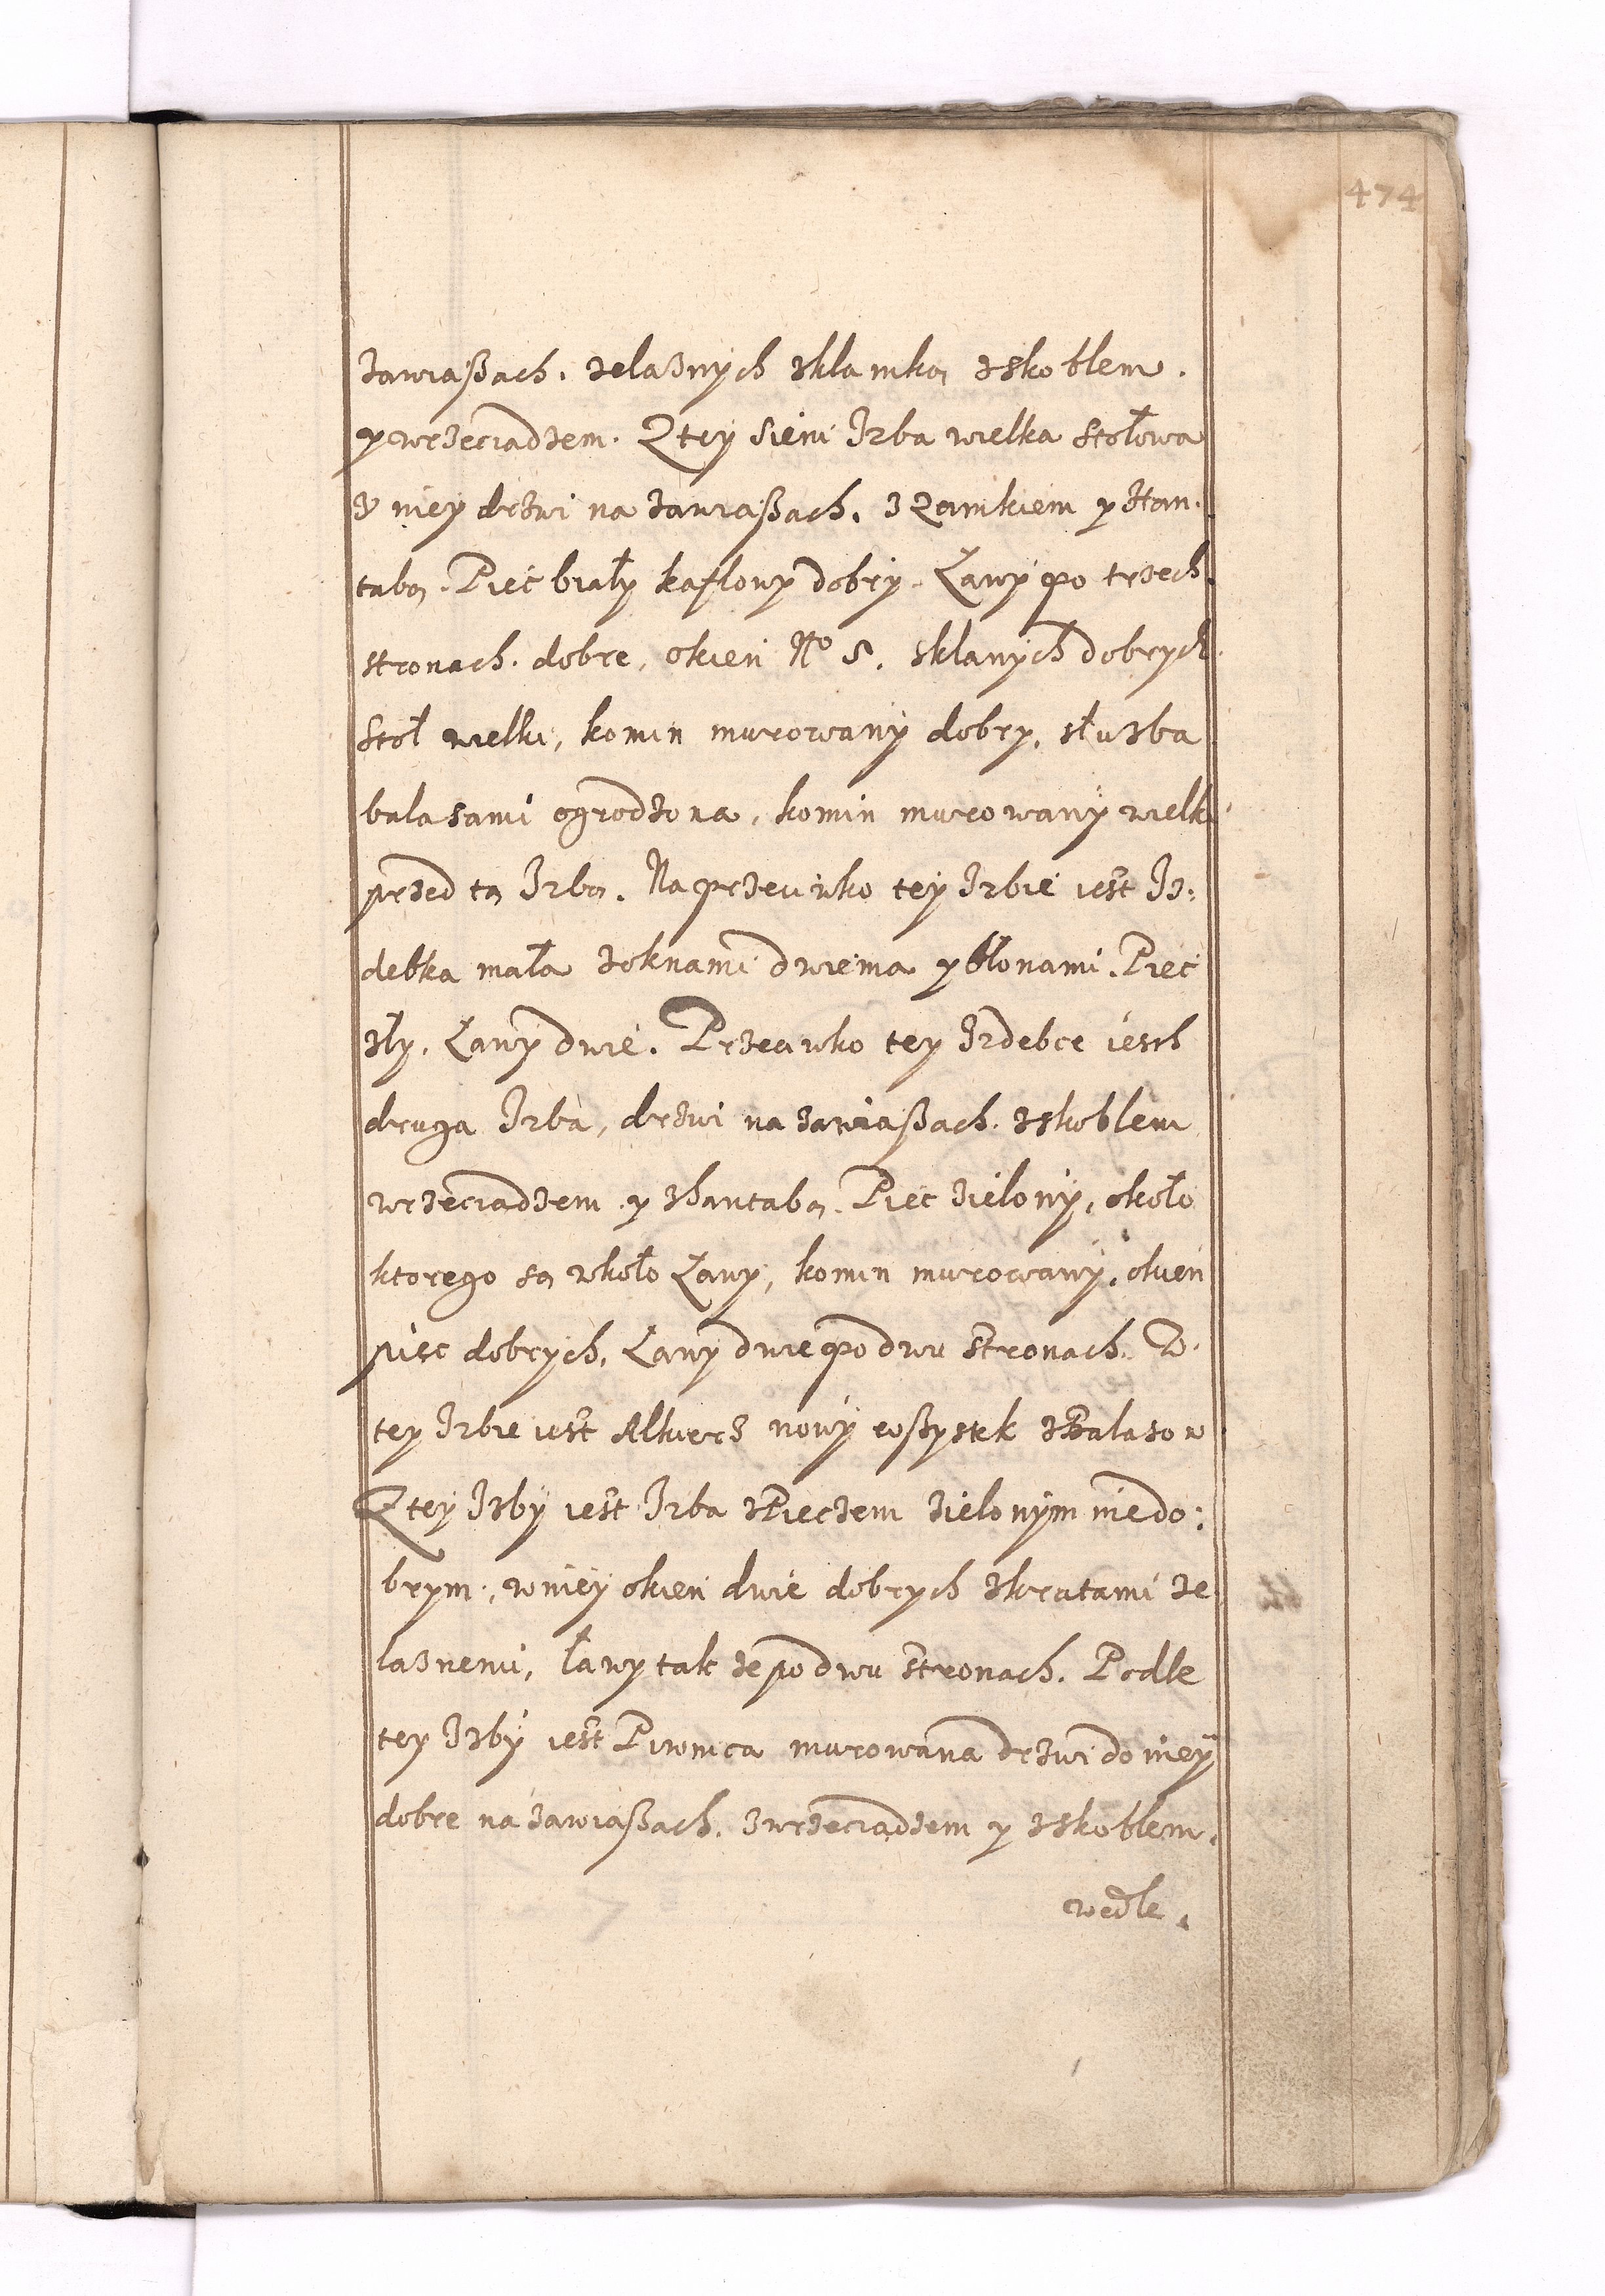 474
zawiaßach. zelaznych zklamką zskoblem.
y wrzeciadzem. Z tey sieni Izba wielka stołowa
v niey drzwi na zawiaßach. z Zamkiem y Han-
tabą. Piec biały kaflowy dobry. Ławy po trzech
stronach. dobre, okien No 5. sklanych dobrych
Stoł wielki, komin murowany dobry, słuzba
balasami ogrodzona, komin murowany wielki
przed tą Izbą. Naprzeciwko tey Izbie iest Iz:
debka mała zoknami dwiema y błonami. Piec
zły. Ławy dwie. Przeciwko tey Izdebce iesth
druga Izba, drzwi na zawiaßach. zskoblem
wrzeciadzem y zhantabą. Piec zielony, około
ktorego są wkoło Ławy, komin murowany, okien
pięc dobrych, Ławy dwie po dwu stronach. W
tey Izbie iest Alkierz nowy roßystek zBalasow
Z tey Izby iest Izba zPieczem zielonym niedo:
brym, w niey okien dwie dobrych zkratami ze
laznemi, ławy tak ze po dwu stronach. Podle
tey Izby iest Piwnica murowana drzwi do niey
dobre na zawiaßach. zwrzeciadzem y zskoblem.
wedle.